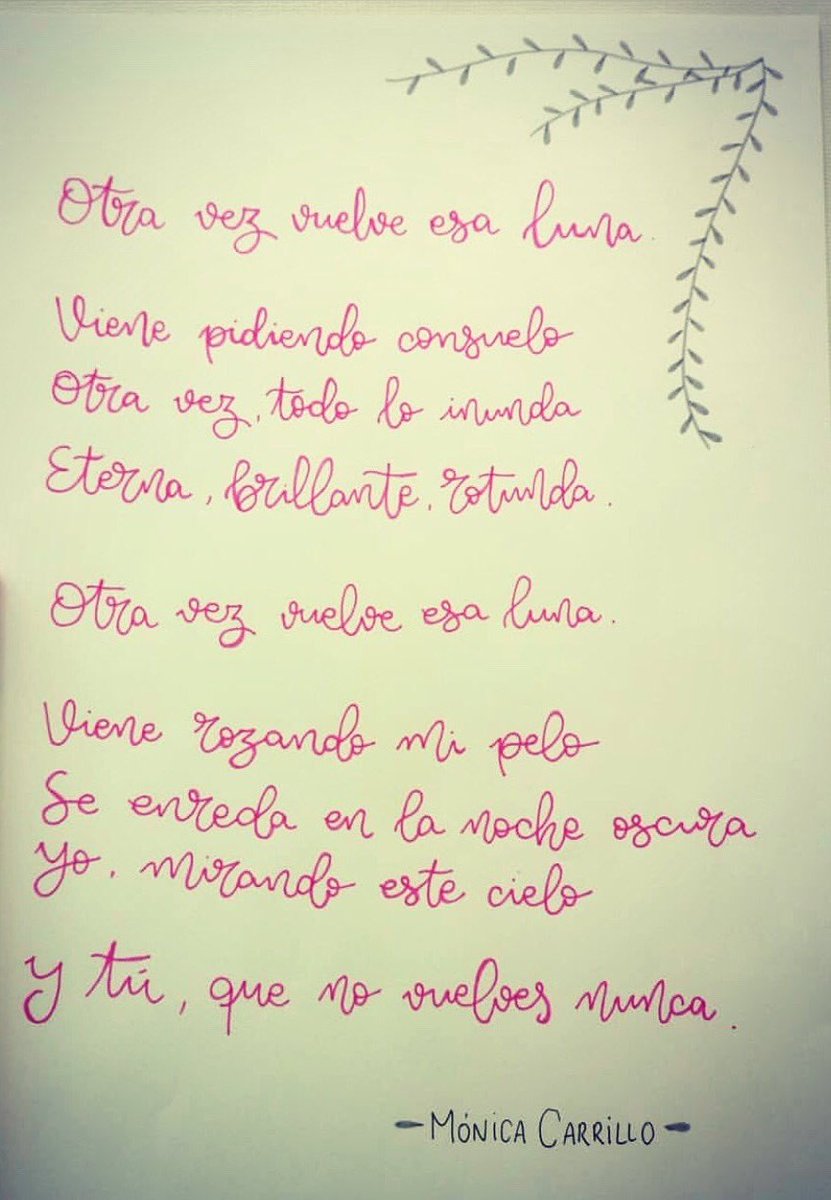 Otra vez vuelve esa luna.
Viene pidiendo consuelo
Otra vez, todo lo inunda
Eterna, brillante, rotunda.
Otra vez vuelve esa luna.
Viene rozando mi pelo
Se enreda en la noche oscura
Yo, mirando este cielo
Y tú, que no vuelves nunca.
- MÓNICA CARRILLO -